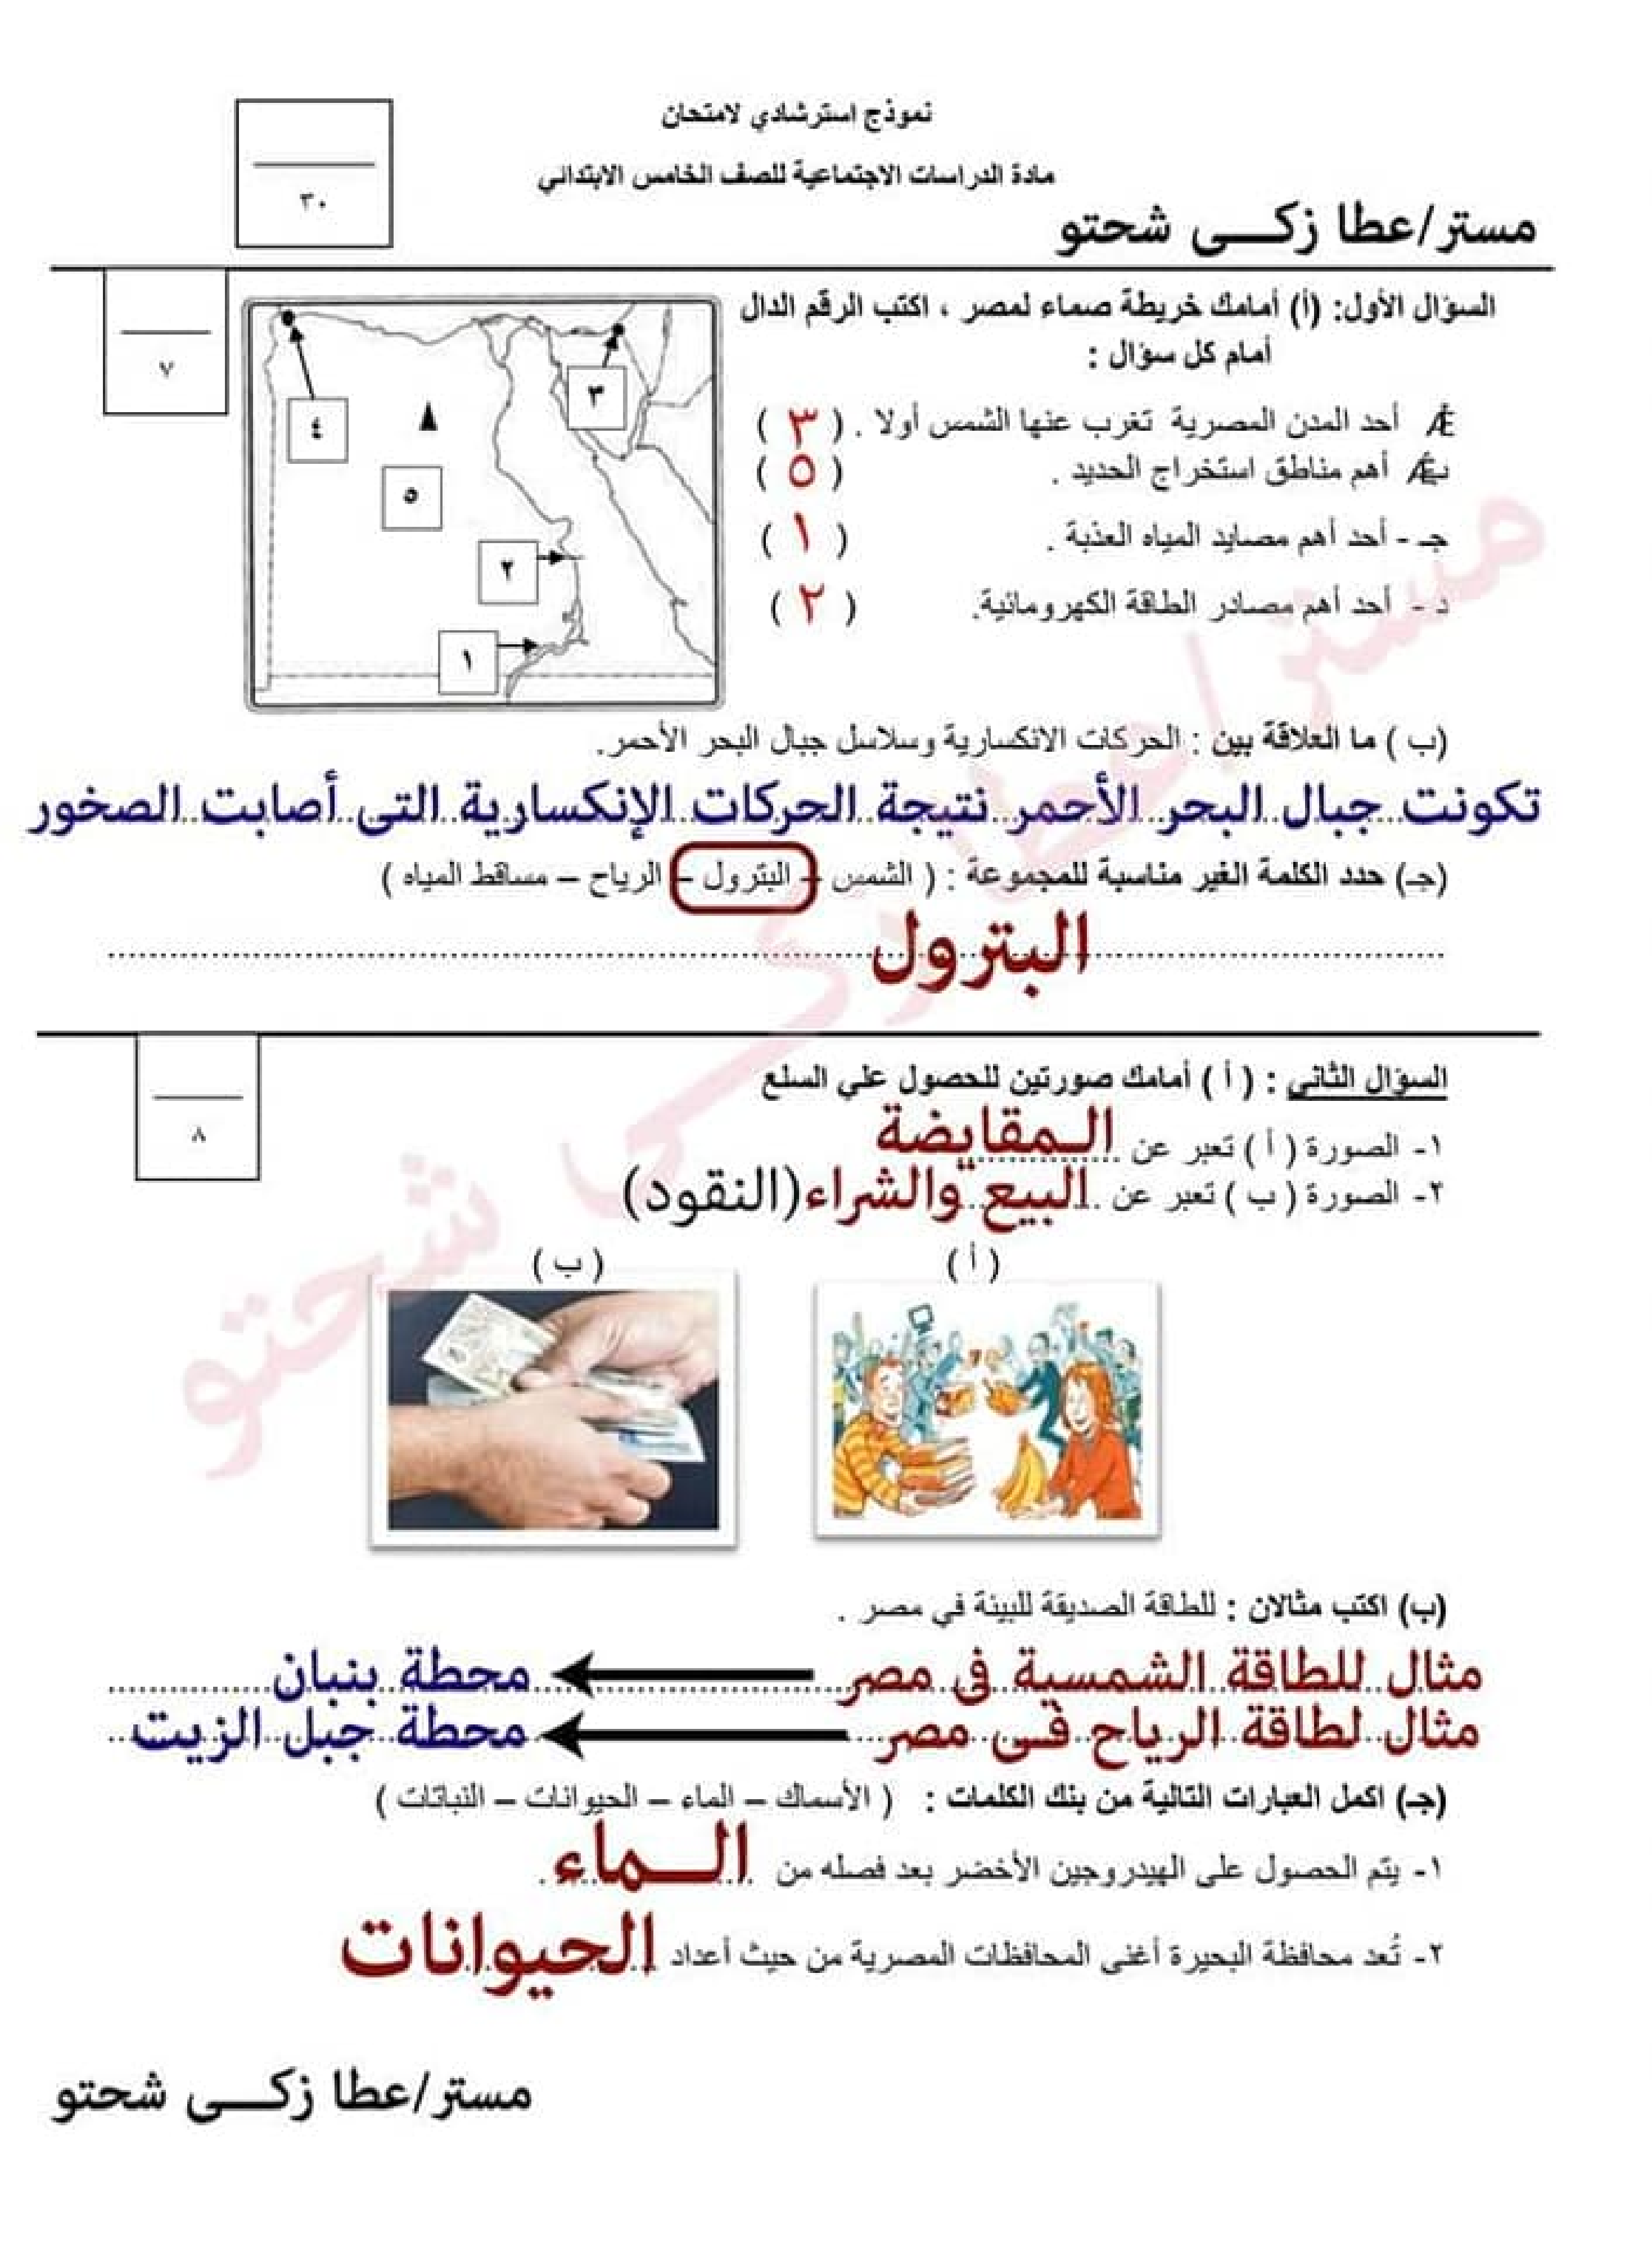 نموذج استرشادي لامتحان
مادة الدراسات الاجتماعية للصف الخامس الابتدائي
٣٠
مستر/عطا زكـــى شحتو
السؤال الأول: (أ) أمامك خريطة صماء لمصر ، اكتب الرقم الدال
أمام كل سؤال :
٧
أحد المدن المصرية تغرب عنها الشمس أولا . ( ٣ )
أهم مناطق استخراج الحديد . ( ٥ )
جـ - أحد أهم مصايد المياه العذبة . ( ١ )
د - أحد أهم مصادر الطاقة الكهرومائية. ( ٢ )
٣
٤
٥
٢
١
(ب ) ما العلاقة بين : الحركات الانكسارية وسلاسل جبال البحر الأحمر.
تكونت جبال البحر الأحمر نتيجة الحركات الإنكسارية التى أصابت الصخور
(جـ) حدد الكلمة الغير مناسبة للمجموعة : ( الشمس – البترول – الرياح – مساقط المياه )
البترول
السؤال الثاني : ( أ ) أمامك صورتين للحصول علي السلع
٨
١- الصورة ( أ ) تعبر عن المقايضة
٢- الصورة ( ب ) تعبر عن البيع والشراء(النقود)
( أ ) ( ب )
(ب) اكتب مثالان : للطاقة الصديقة للبيئة في مصر .
مثال للطاقة الشمسية فى مصر محطة بنبان
مثال لطاقة الرياح فى مصر محطة جبل الزيت
(جـ) اكمل العبارات التالية من بنك الكلمات : ( الأسماك – الماء – الحيوانات – النباتات )
١- يتم الحصول على الهيدروجين الأخضر بعد فصله من الـــماء .
٢- تُعد محافظة البحيرة أغنى المحافظات المصرية من حيث أعداد الحيوانات
مستر/عطا زكـــى شحتو
مستر/عطا زكى شحتو